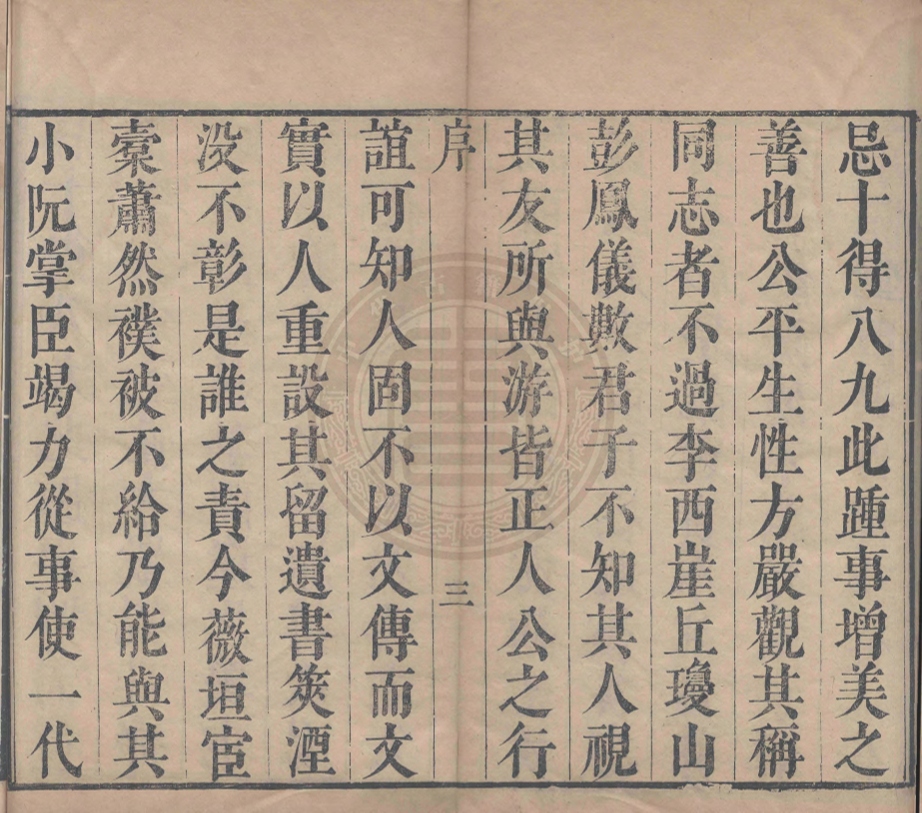 忌十得八九此踵事增美之
善也公平生性方嚴觀其稱
同志者不過李西崖丘瓊山
彭鳳儀數君子不知其人視
其友所與游皆正人公之行
序 三
誼可知人固不以文傳而文
實以人重設其留遺書筴湮
没不彰是誰之責今薇垣宦
橐蕭然襆被不給乃能與其
小阮掌臣竭力從事使一代